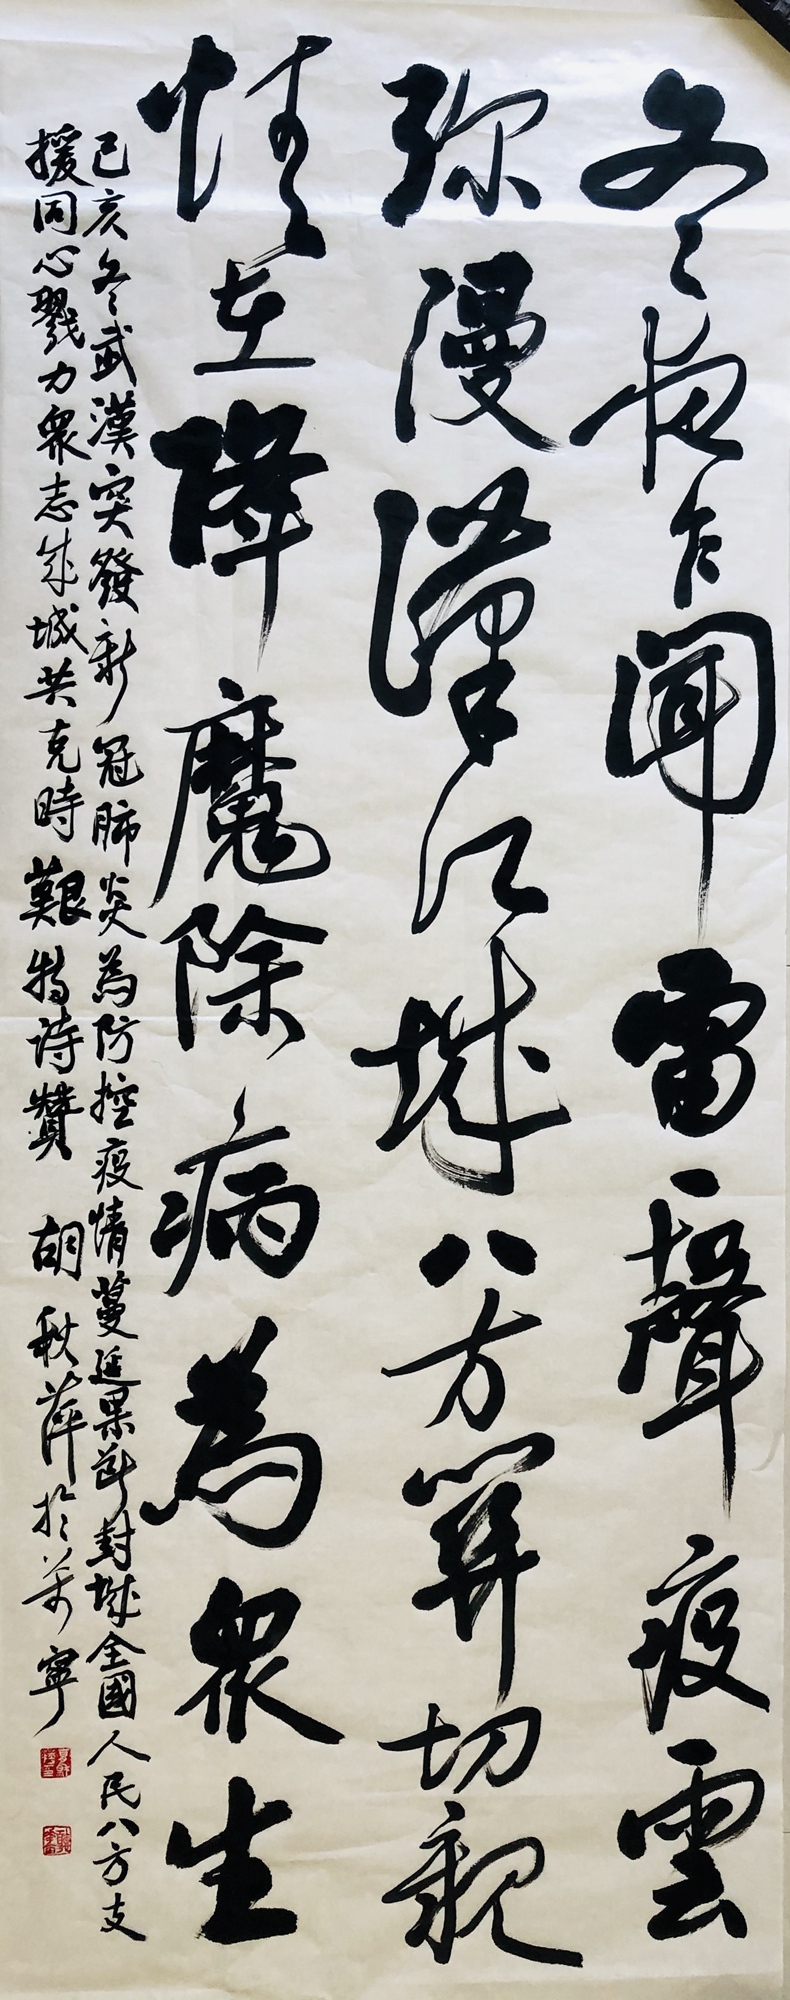 冬夜乍聞雷聲疫雲
弥漫漢江城八方算切親
情在降魔除病為眾生
己亥冬武漢突發新冠肺炎為防控疫情蔓延果斷封城全國人民八方支
援同心戮力眾志成城共克時艱特诗贊 胡秋萍於萬寧